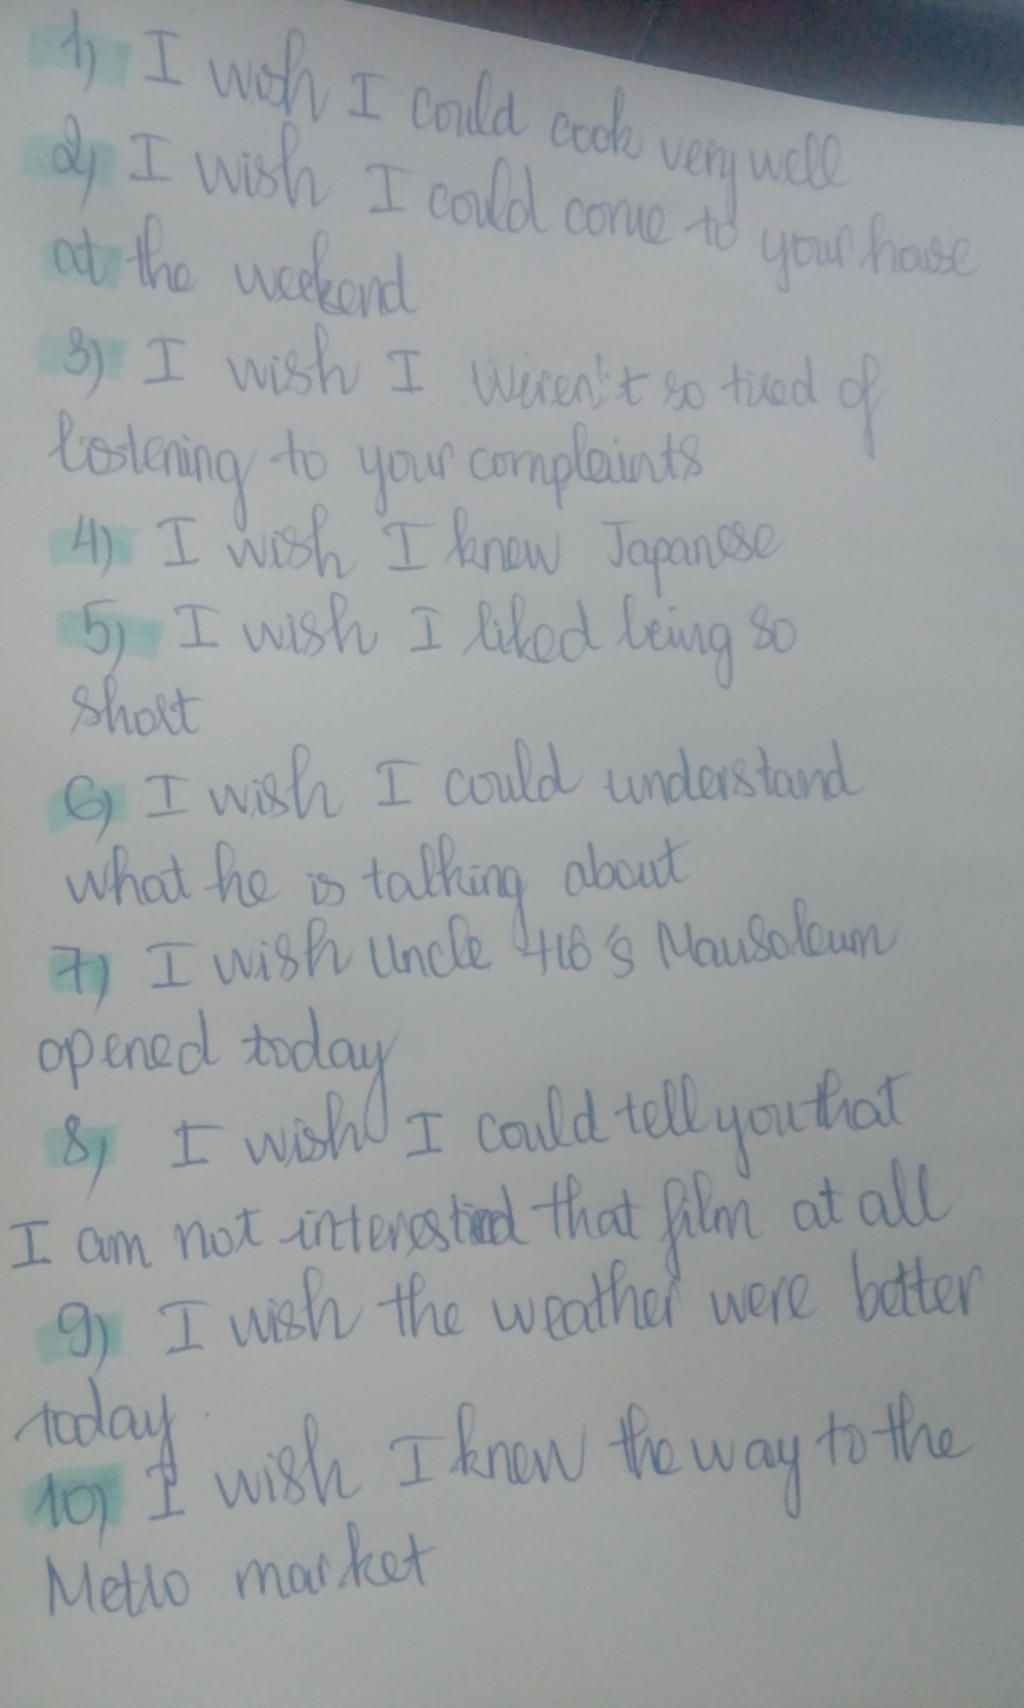 1) I wish I could cook very well
2) I wish I could come to your house
at the weekend
3) I wish I weren't so tired of
listening to your complaints
4) I wish I knew Japanese
5) I wish I liked being so
short
6) I wish I could understand
what he is talking about
7) I wish Uncle Hồ's Mausoleum
opened today
8) I wish I could tell you that
I am not interested that film at all
9) I wish the weather were better
today
10) I wish I knew the way to the
Metro market